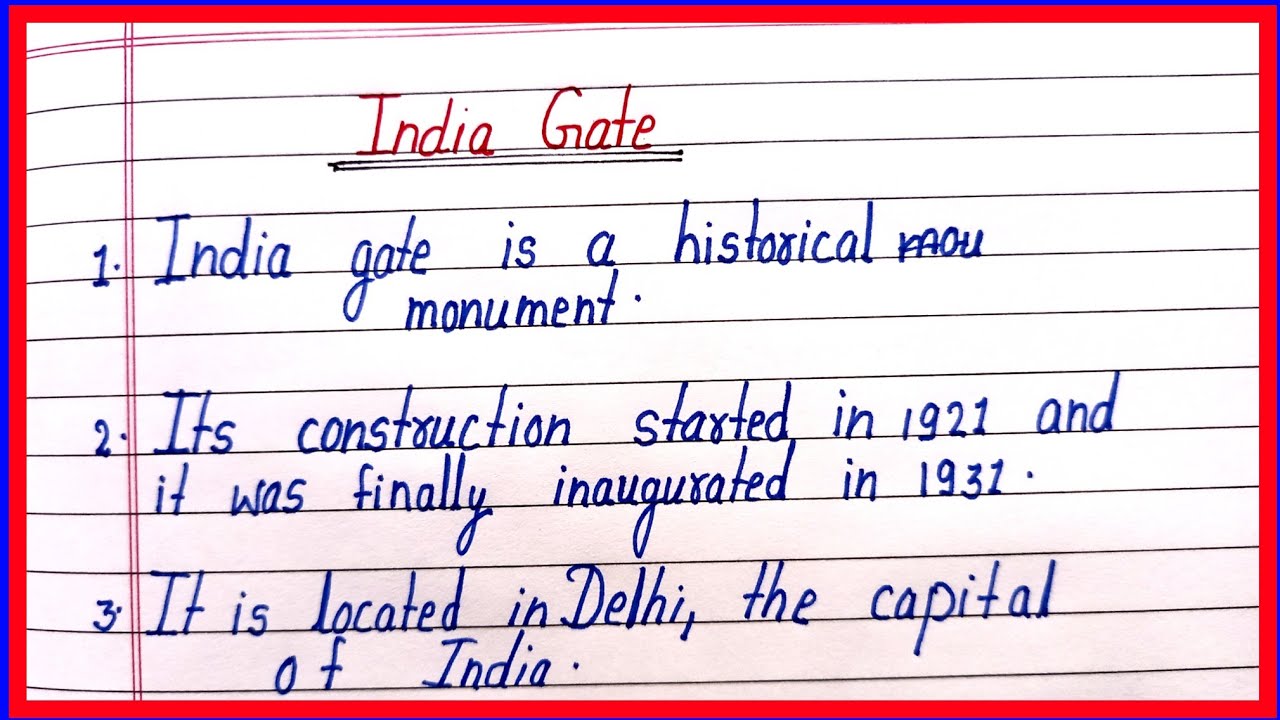 India Gate
1. India gate is a historical mou
monument.
2. Its construction started in 1921 and
it was finally inaugurated in 1931.
3. It is located in Delhi, the capital
of India.